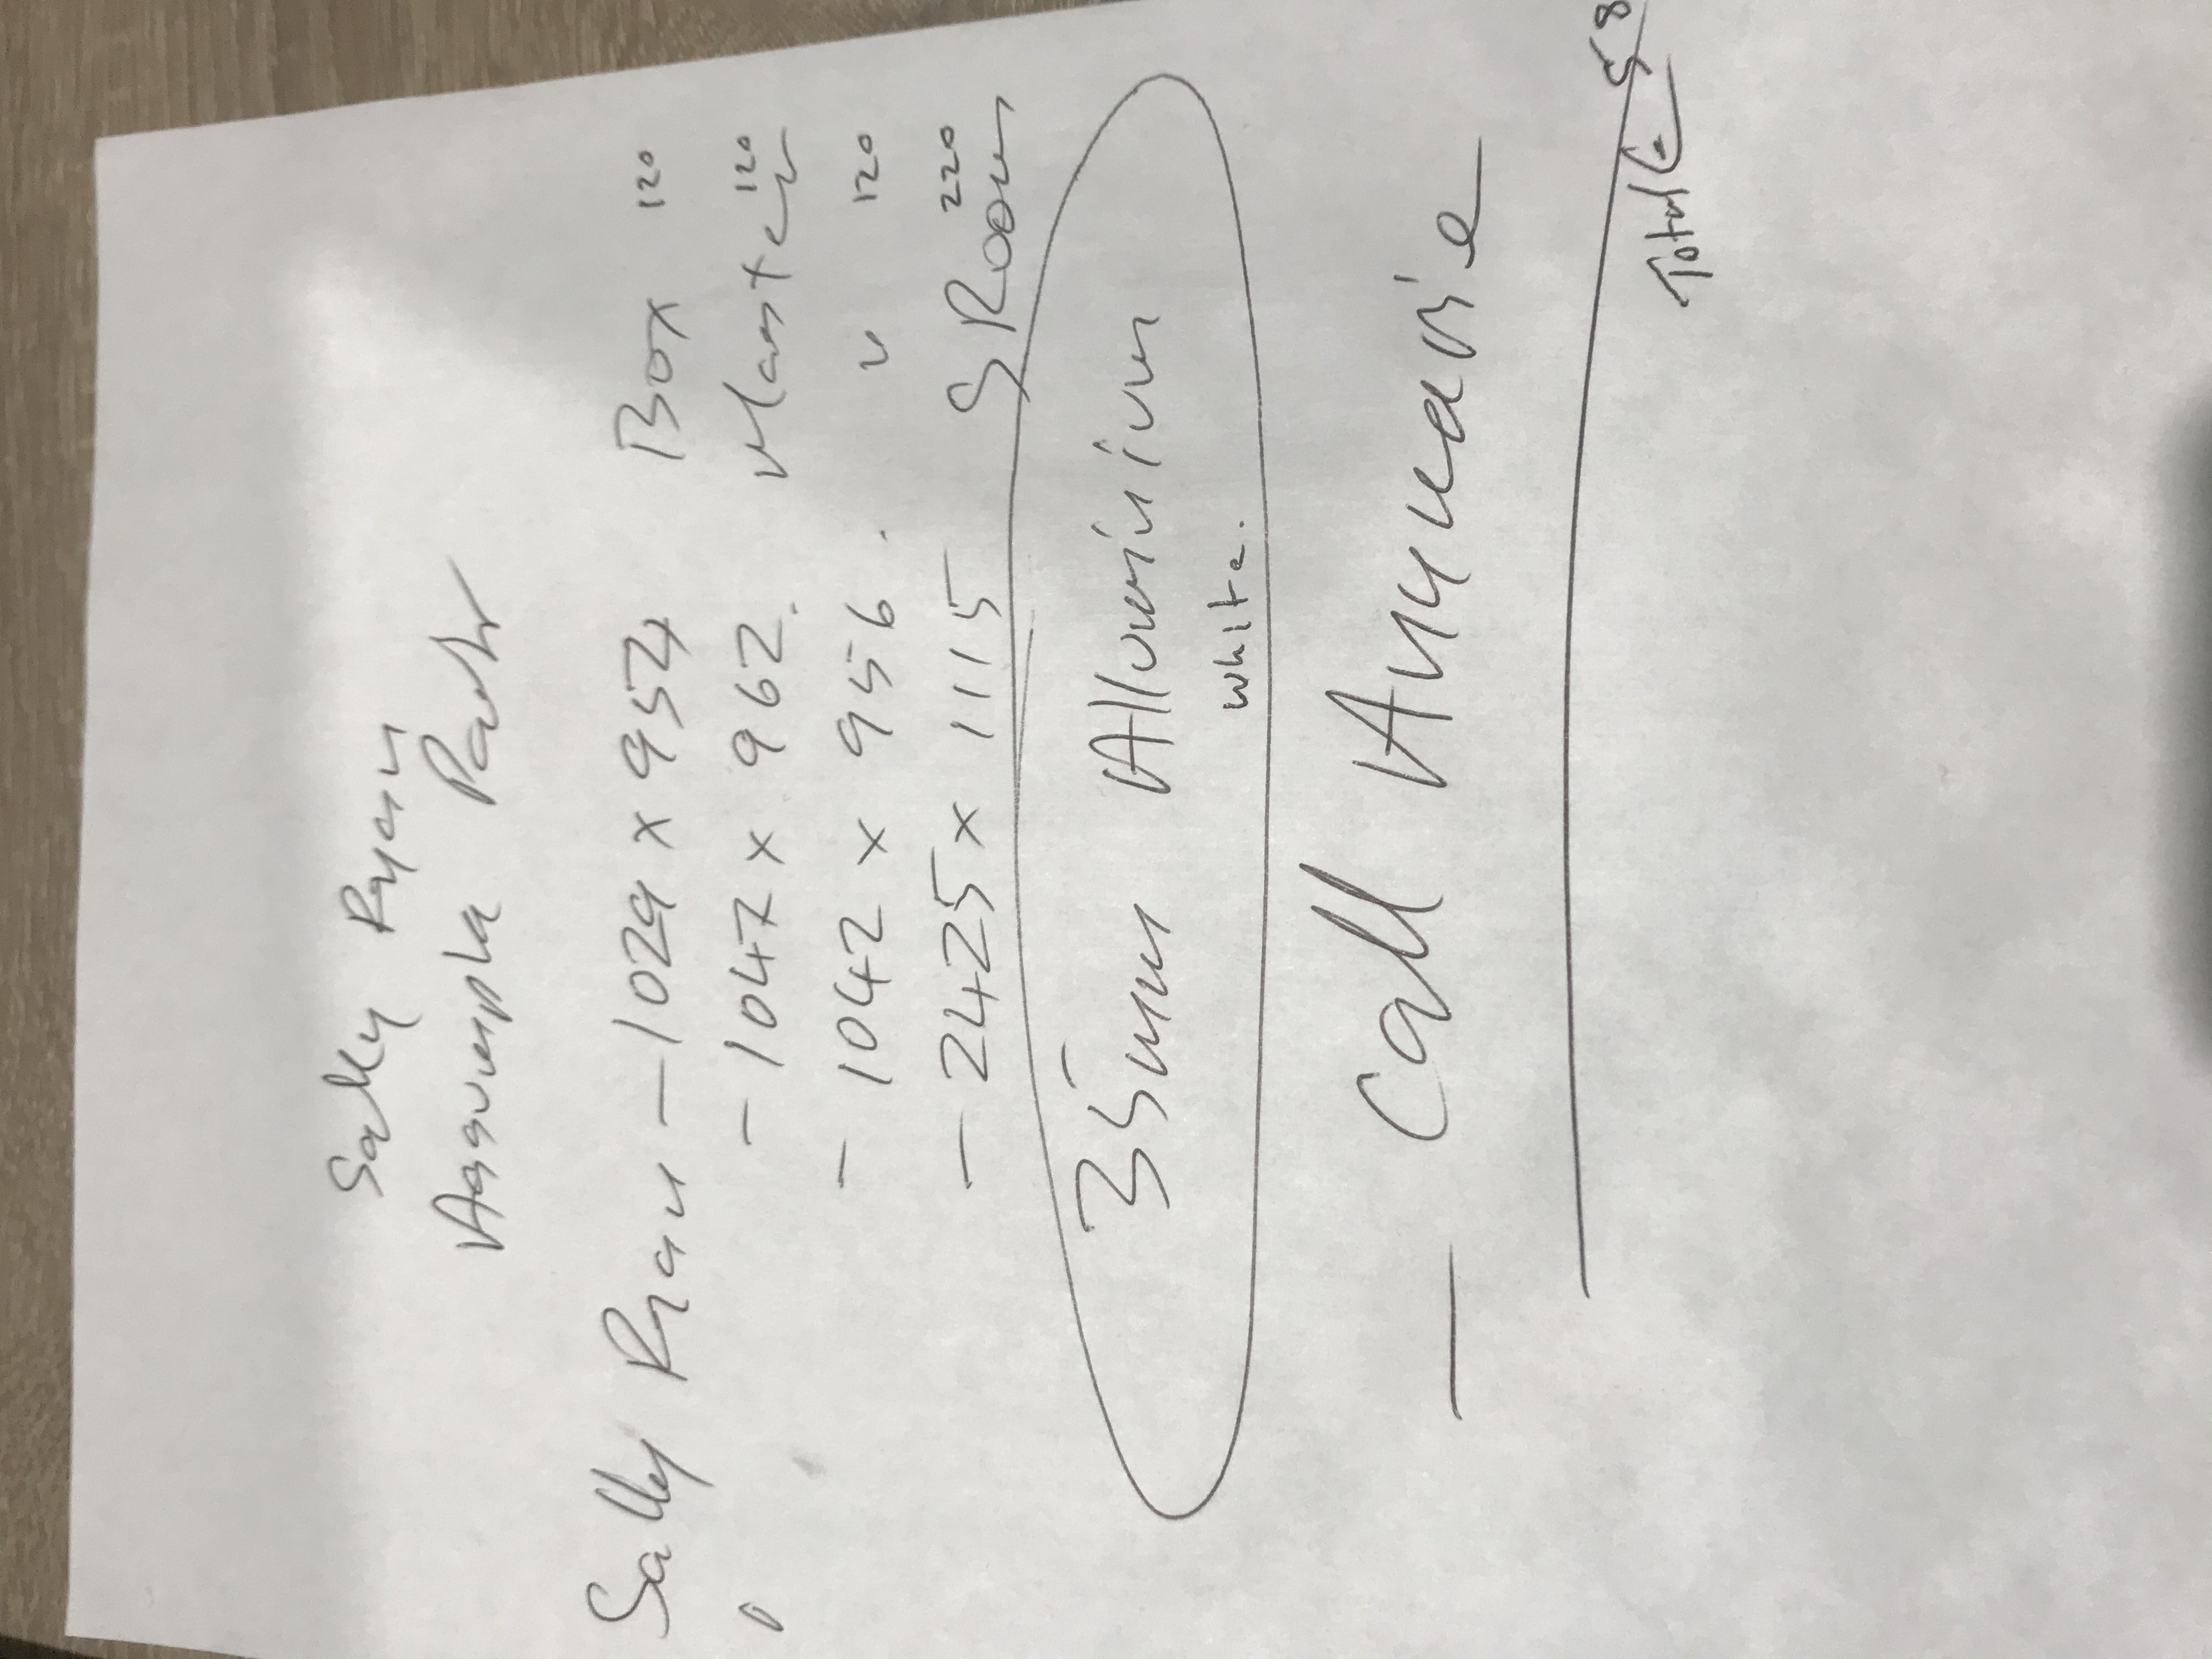 Sally Ryan
Assumpta Park
Sally Ryan - 1029 x 954 Box 120
- 1047 x 962. Master 120
- 1042 x 956. " 120
- 2425 x 1115 S Room 220
35mm Alluminium
white.
- Call Annmarie
Total € 58